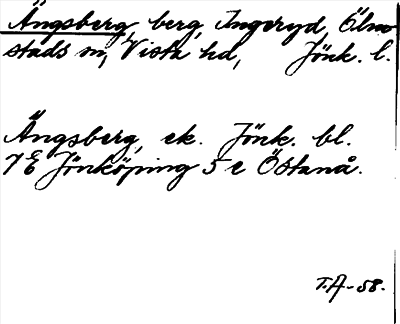 Ängsberg, berg, Ingeryd, Ölm-
stads sn, Vista hd, Jönk. l.
Ängsberg, ek. Jönk. bl.
7E Jönköping 5 e Östanå.
T.A-58.